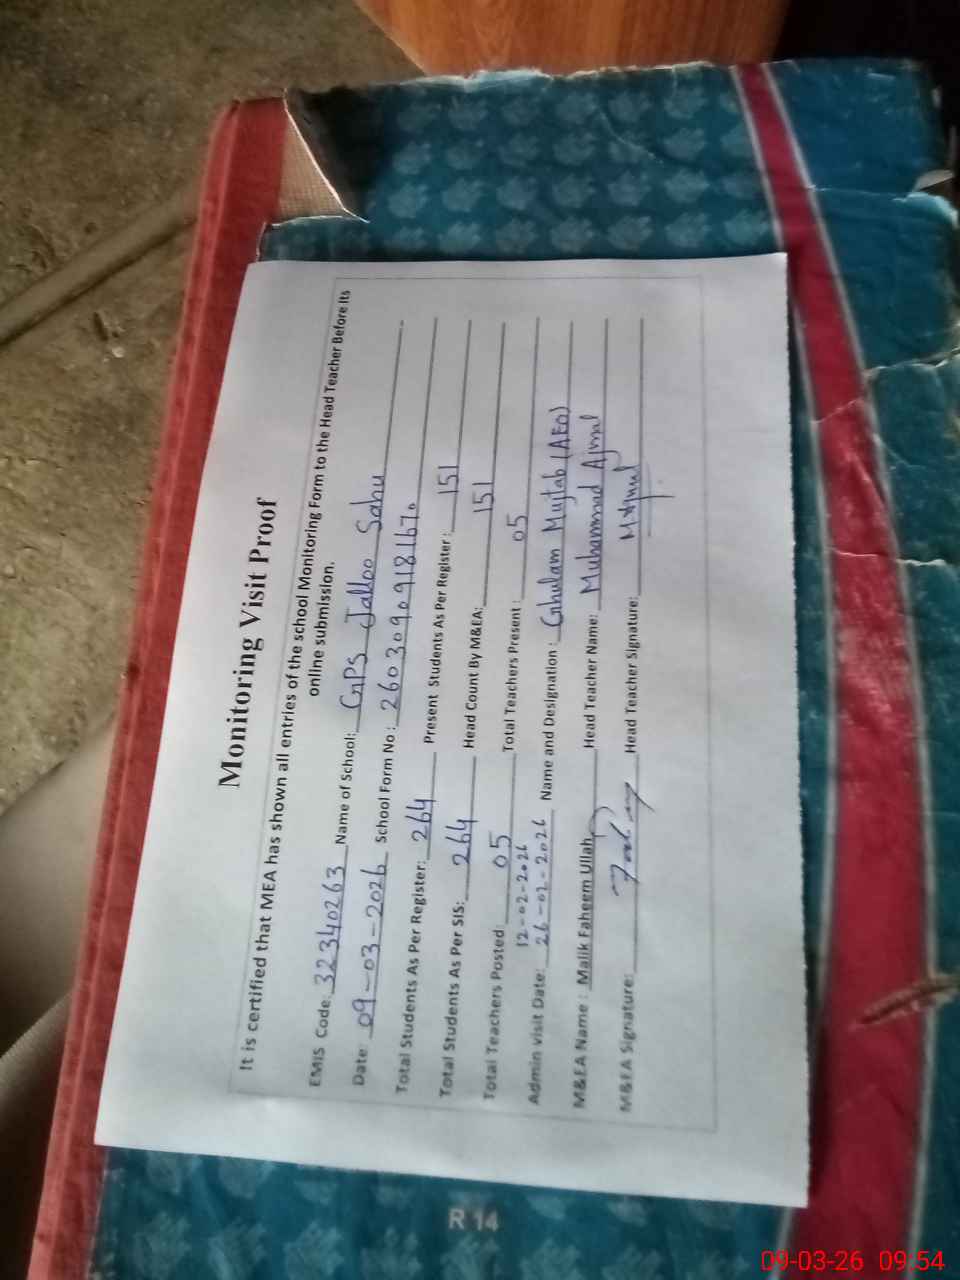 Monitoring Visit Proof
It is certified that MEA has shown all entries of the school Monitoring Form to the Head Teacher Before its
online submission.
EMIS Code: 32340263 Name of School: GPS Jalloo Sahu
Date: 09-03-2026 School Form No: 26030909181670
Total Students As Per Register: 264 Present Students As Per Register: 151
Total Students As Per SIS: 264 Head Count By M&EA: 151
Total Teachers Posted: 05 Total Teachers Present: 05
12-02-2026
Admin visit Date: 26-02-2026 Name and Designation: Ghulam Mujtab (AEO)
M&EA Name: Malik Faheem Ullah Head Teacher Name: Muhammad Ajmal
M&EA Signature: Head Teacher Signature: M Ajmal
R 14
09-03-26 09:54